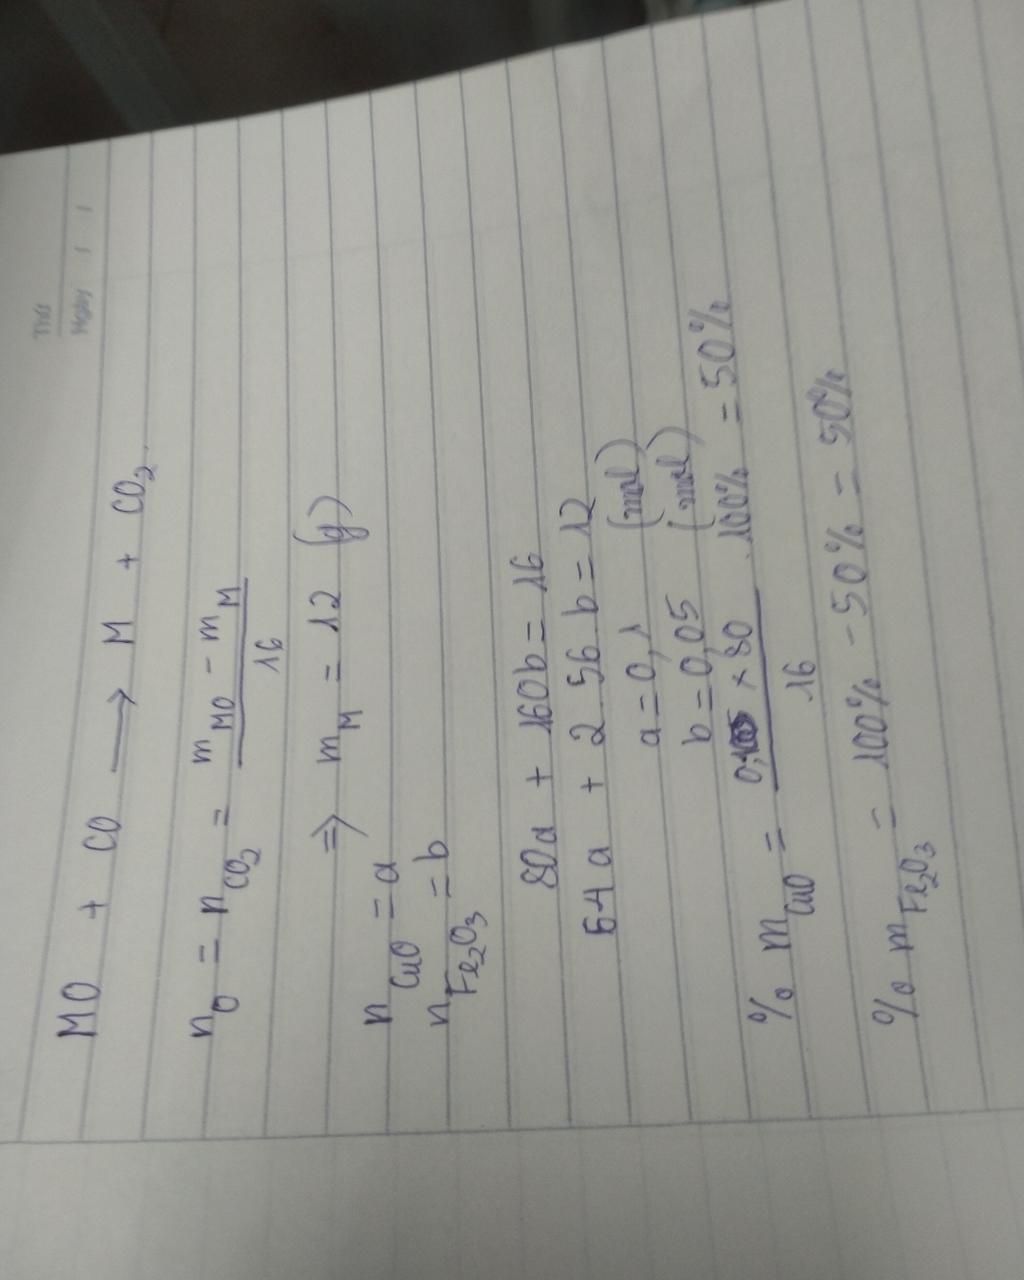 Thứ
Ngày / /
MO + CO → M + CO₂.
n_O = n_CO₂ = (m_MO - m_M)/16
⇒ m_M = 12 (g)
n_CuO = a
n_Fe₂O₃ = b
80a + 160b = 16
64a + 2 56 b = 12
a = 0,1 (mol)
b = 0,05 (mol)
% m_CuO = (0,1 × 80)/16 . 100% = 50%
% m_Fe₂O₃ = 100% - 50% = 50%